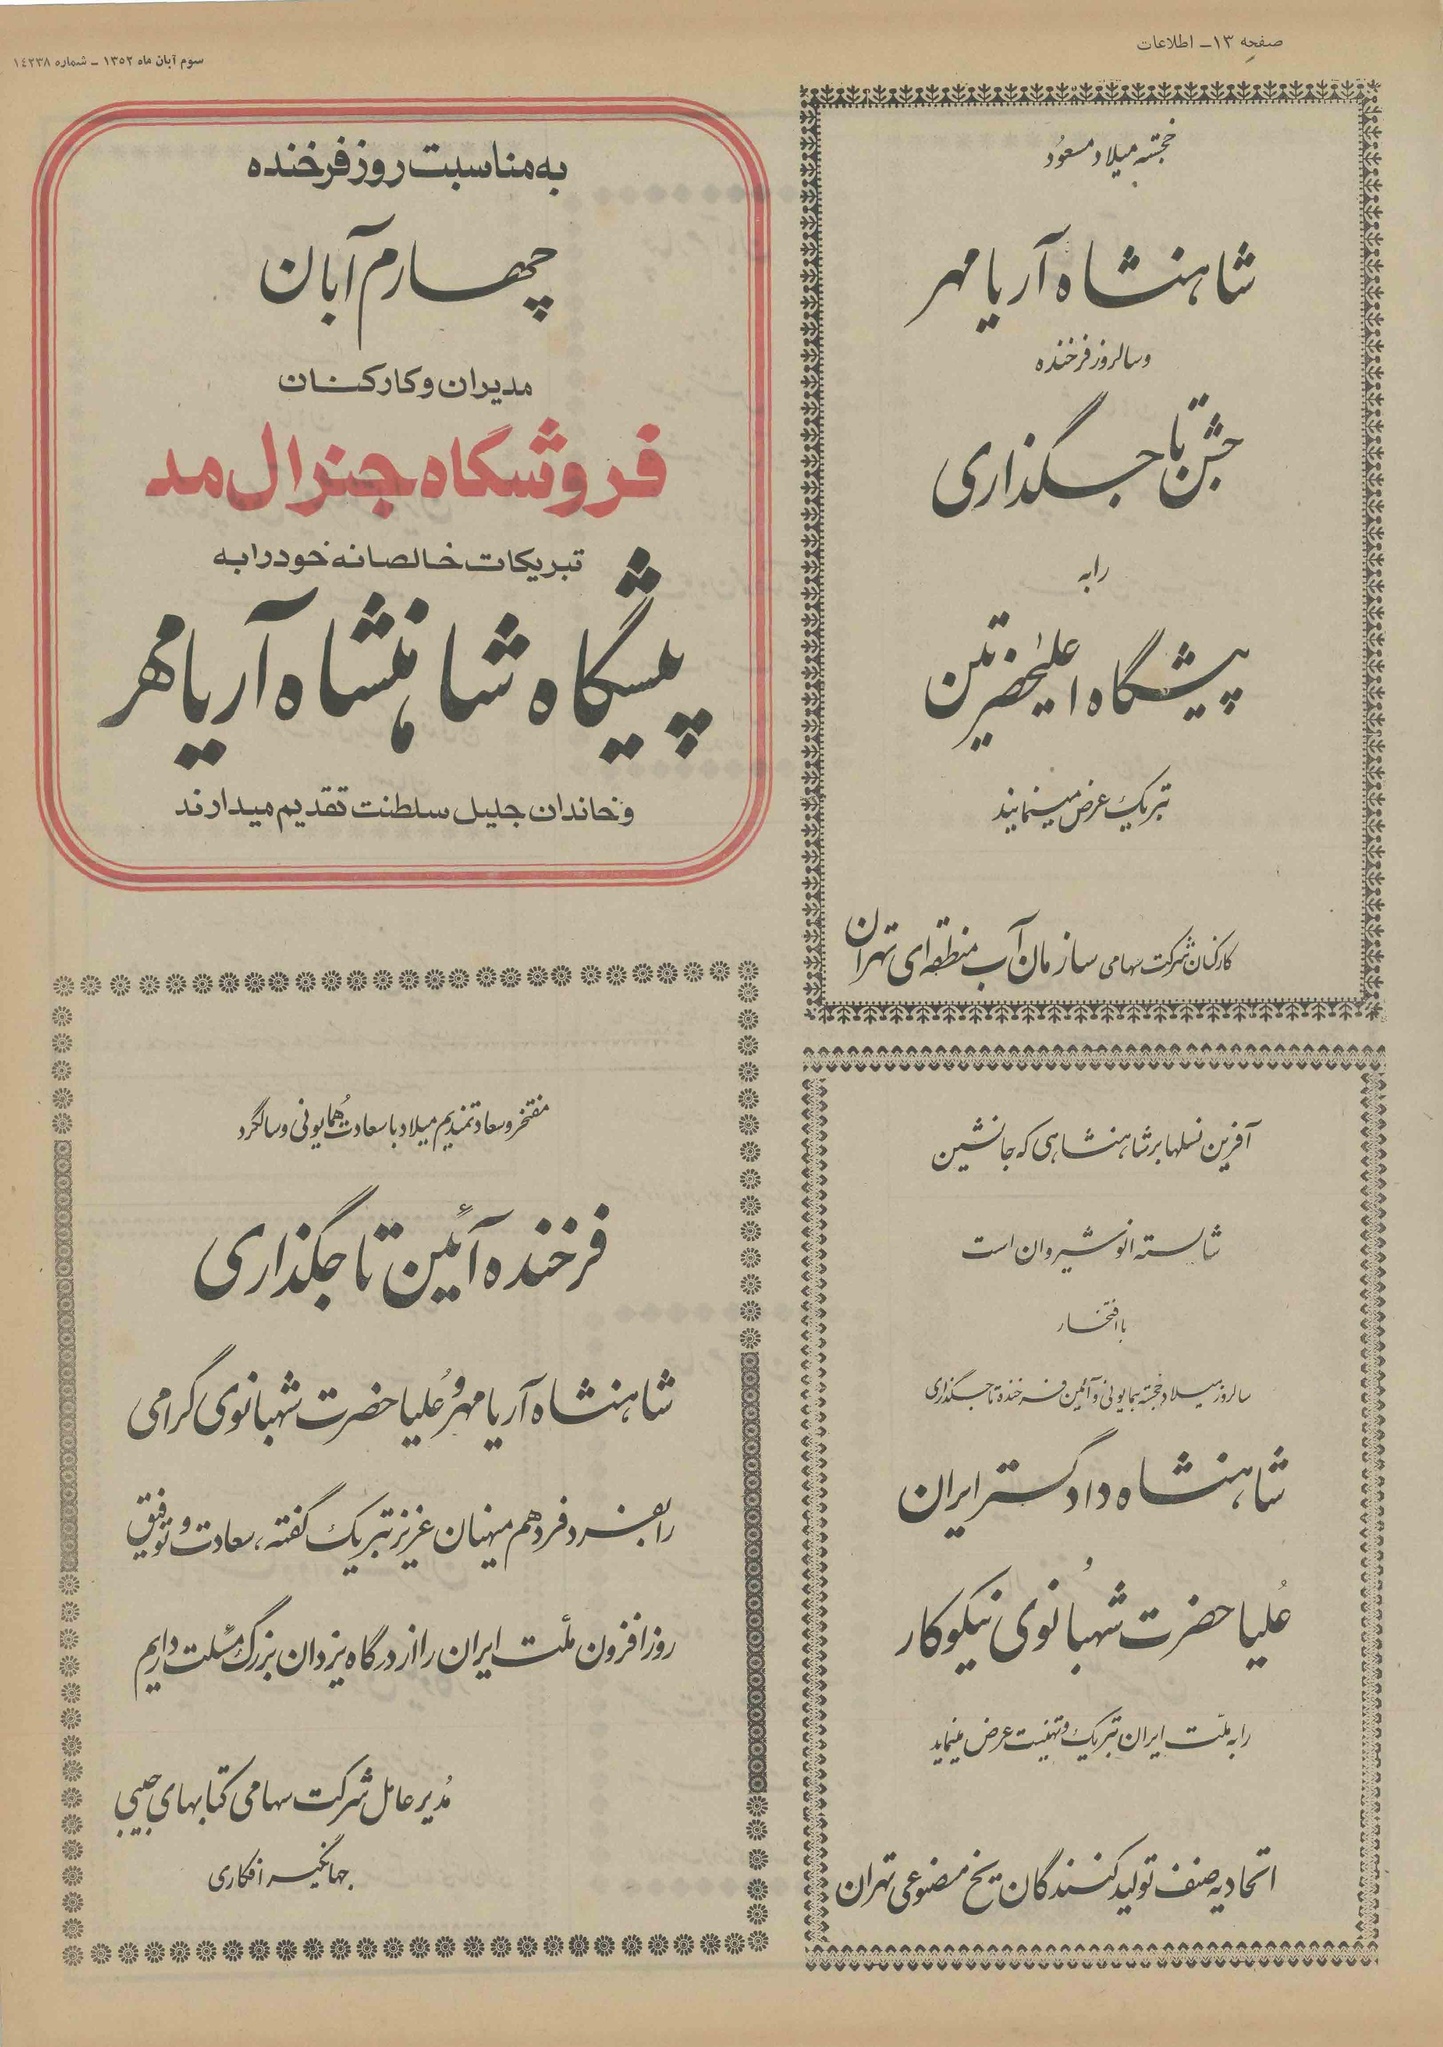 صفحه ۱۳ـ اطلاعات
سوم آبان ماه ۱۳۵۲ ـ شماره ۱٤۲۳۸
خجسته میلاد مسعود
شاهنشاه آریامهر
و سالروز فرخنده
جشن تاجگذاری
را به
پیشگاه اعلیحضرتین
تبریک عرض مینمایند
کارکنان شرکت سهامی سازمان آب منطقه‌ای تهران
به مناسبت روز فرخنده
چهارم آبان
مدیران و کارکنان
فروشگاه جنرال مد
تبریکات خالصانه خود را به
پیشگاه شاهنشاه آریامهر
و خاندان جلیل سلطنت تقدیم میدارند
آفرین نسلها بر شاهنشاهی که جانشین
شایسته انوشیروان است
با افتخار
سالروز میلاد خجسته همایونی و آئین فرخنده تاجگذاری
شاهنشاه دادگستر ایران
و
عُلیا حضرت شهبانوی نیکوکار
را به ملّت ایران تبریک و تهنیت عرض مینماید
اتحادیه صنف تولید کنندگان یخ مصنوعی تهران
مفتخر و سعادتمندیم میلاد با سعادت هُمایونی و سالگرد
فرخنده آئین تاجگذاری
شاهنشاه آریامهر و عُلیا حضرت شهبانوی گرامی
را بفرد فرد هم میهنان عزیز تبریک گفته، سعادت و توفیق
روزافزون ملّت ایران را از درگاه یزدان بزرگ مسئلت داریم
مُدیر عامل شرکت سهامی کتابهای جیبی
جهانگیر افکاری